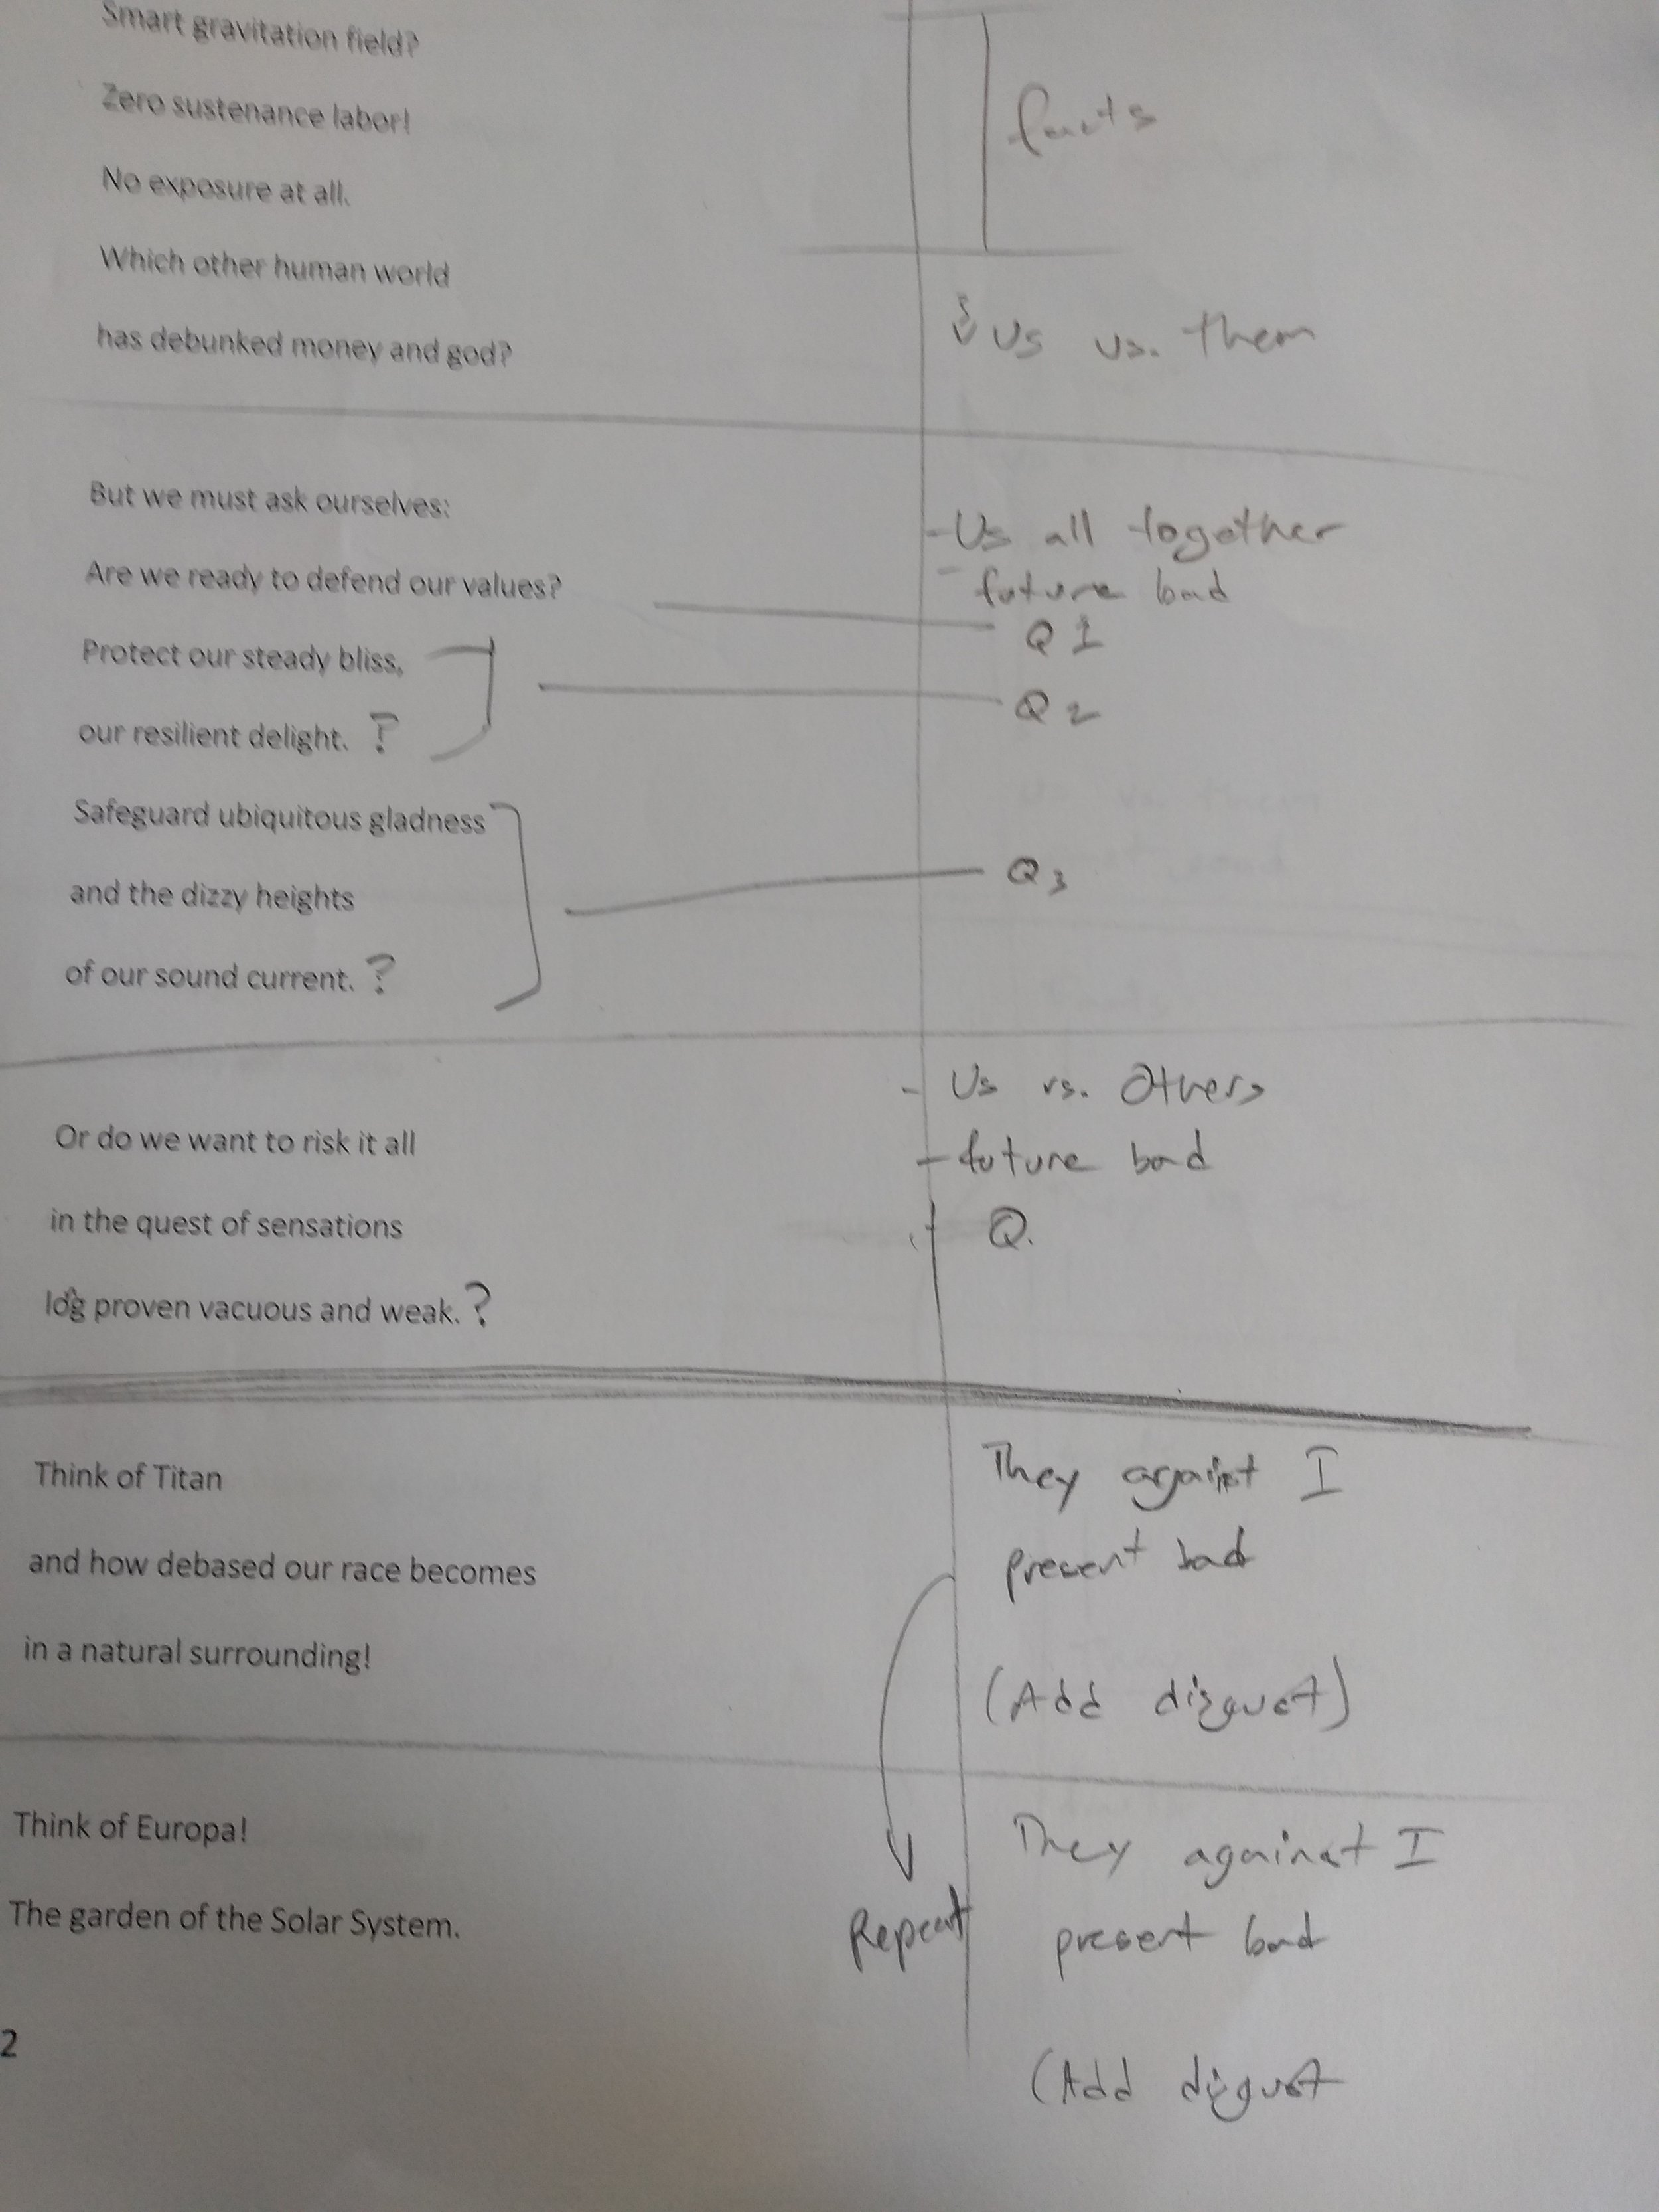 Smart gravitation field?
Zero sustenance labor!
facts
No exposure at all.
Which other human world
has debunked money and god?
Us vs. them
But we must ask ourselves:
- Us all together
Are we ready to defend our values?
- future bad
Q 1
Protect our steady bliss,
Q 2
our resilient delight. ?
Safeguard ubiquitous gladness
Q 3
and the dizzy heights
of our sound current. ?
- Us vs. Others
Or do we want to risk it all
- future bad
in the quest of sensations
Q.
log proven vacuous and weak. ?
Think of Titan
They against I
and how debased our race becomes
present bad
in a natural surrounding!
(Add disgust)
Think of Europa!
They against I
The garden of the Solar System.
Repeat
present bad
2
(Add disgust